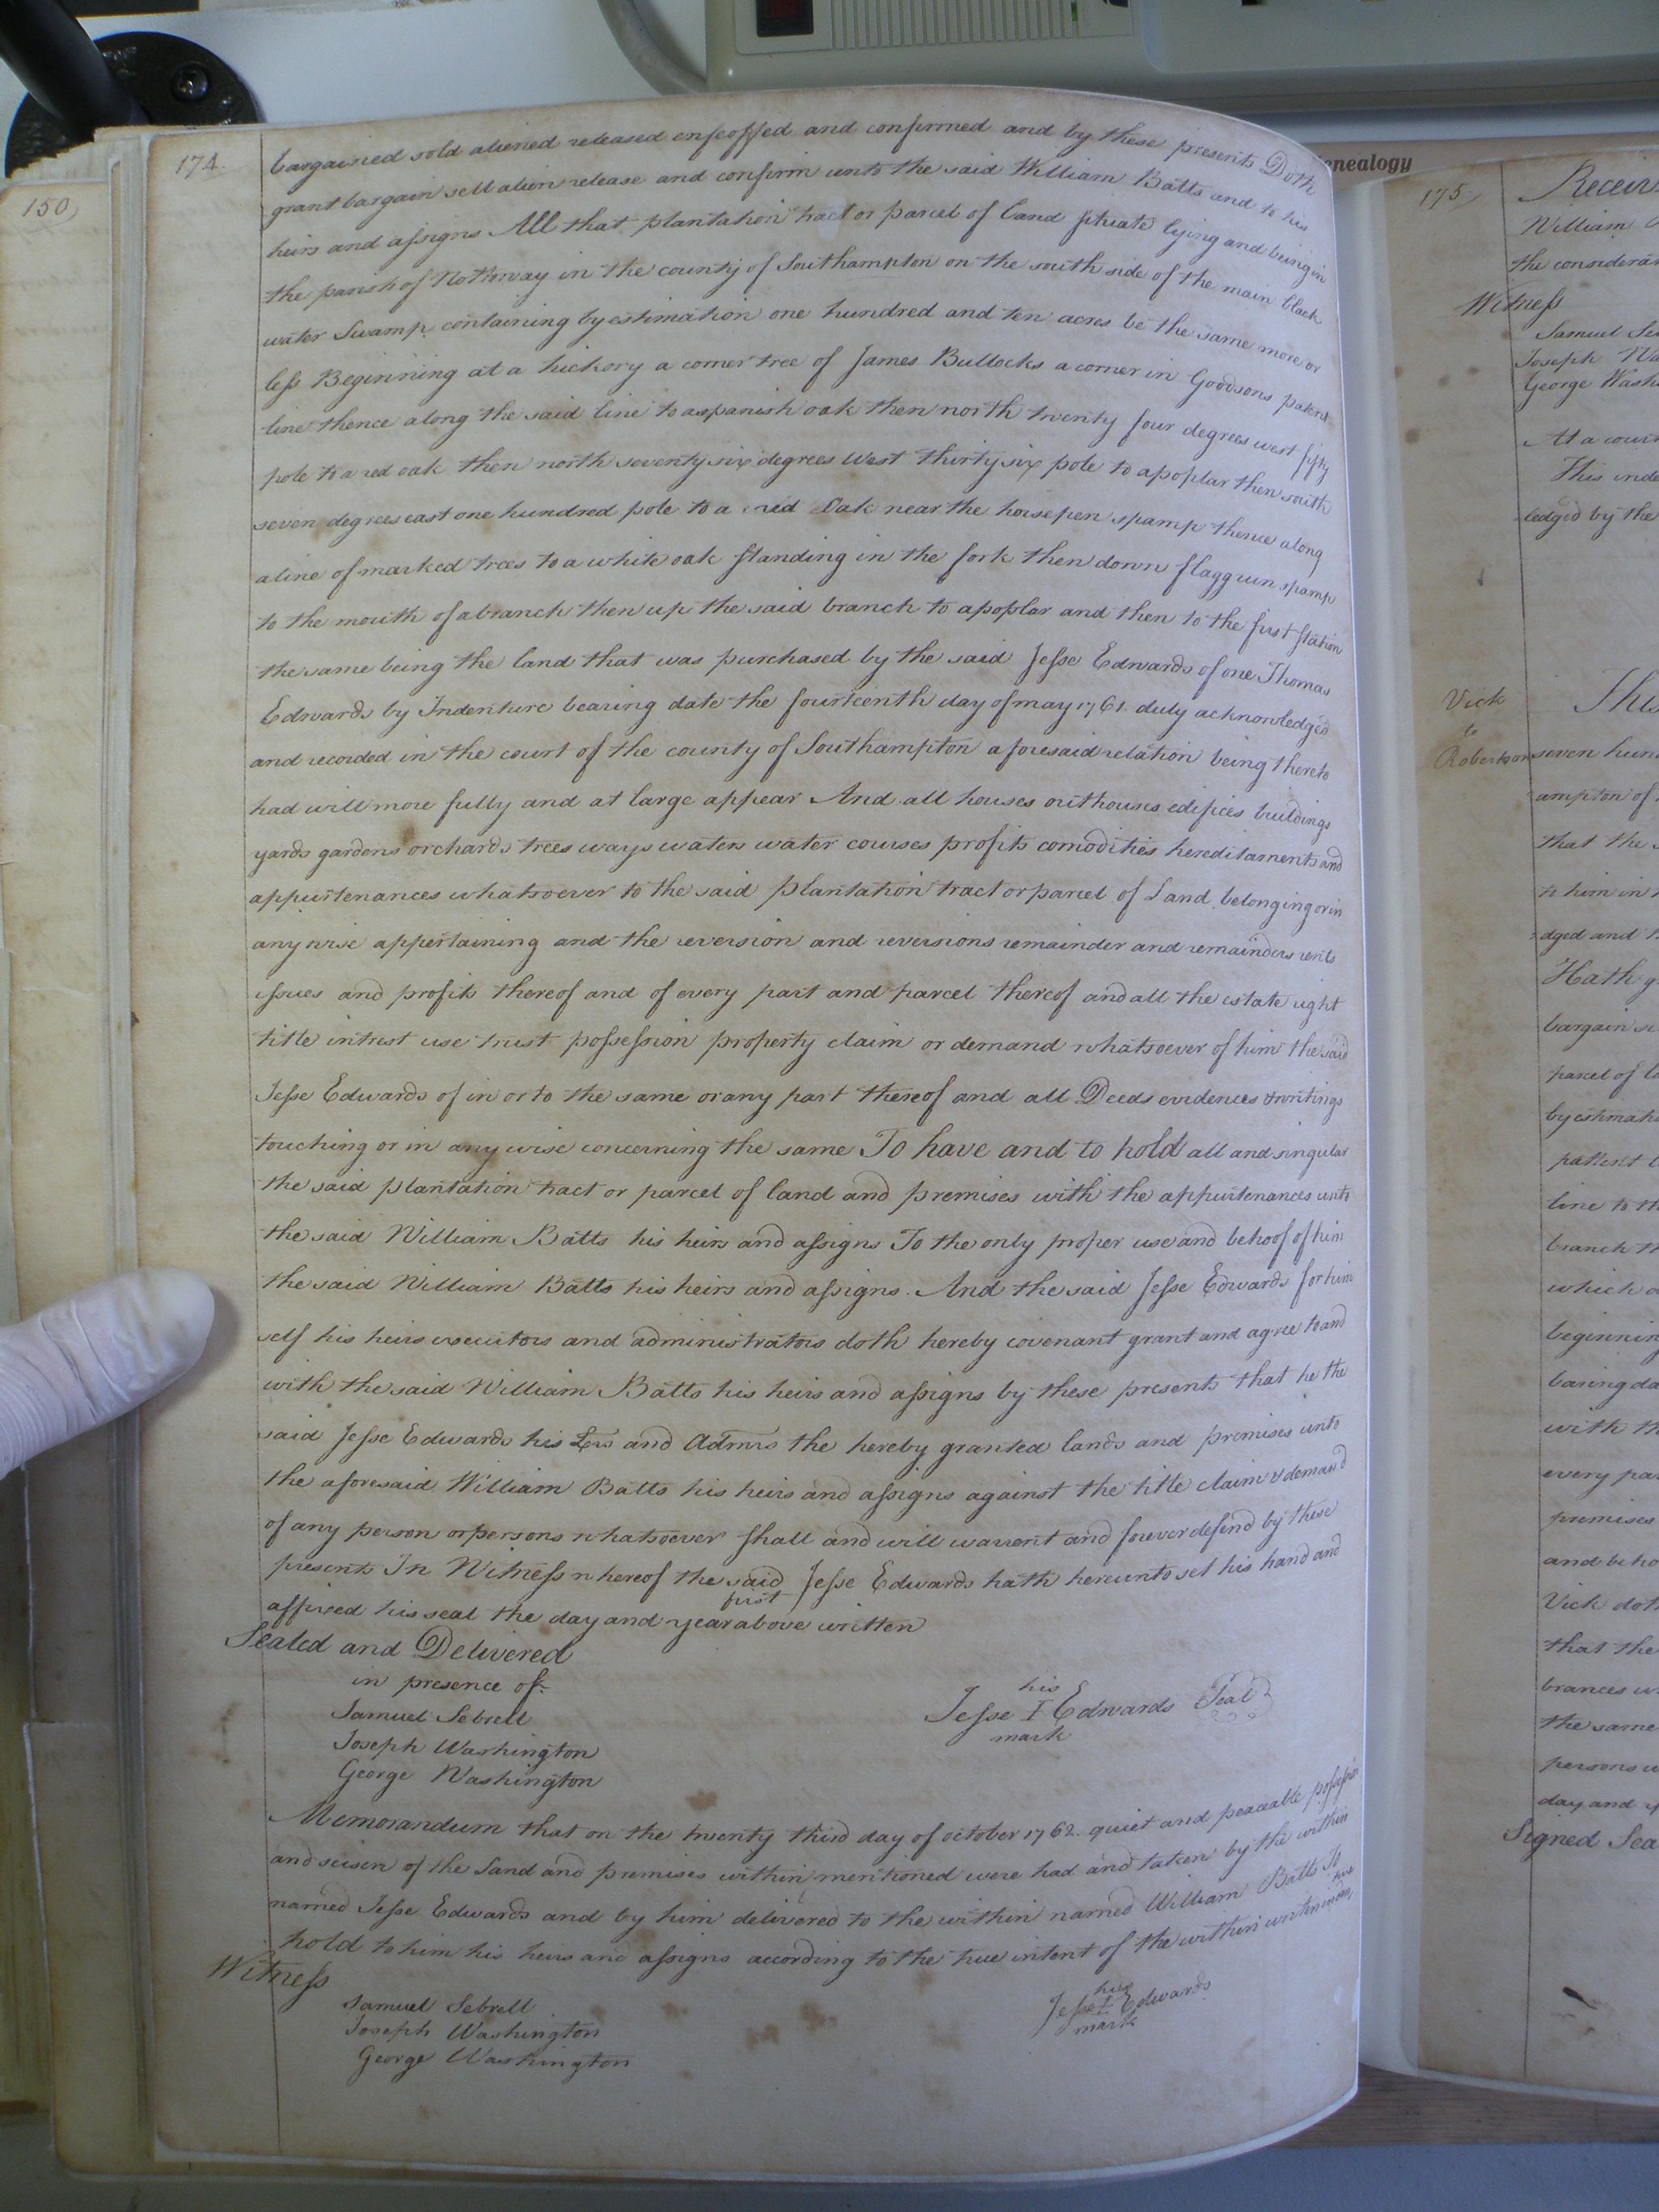 150
174.
bargained sold aliened released enfeoffed and confirmed and by these presents Doth
grant bargain sell alien release and confirm unto the said William Batts and to his
heirs and assigns All that plantation tract or parcel of land situate lying and being in
the parish of Nottoway in the county of Southampton on the south side of the main black
water Swamp containing by estimation one hundred and ten acres be the same more or
less Beginning at a hickory a corner tree of James Bullocks a corner in Goodsons patent
line thence along the said line to a spanish oak then north twenty four degrees west fifty
pole to a red oak then north seventy six degrees West thirty six pole to a poplar then south
seven degrees east one hundred pole to a red Oak near the horsepen spamp thence along
a line of marked trees to a white oak standing in the fork then down flaggrun spamp
to the mouth of a branch then up the said branch to a poplar and then to the first station
the same being the land that was purchased by the said Jesse Edwards of one Thomas
Edwards by Indenture bearing date the fourteenth day of may 1761. duly acknowledged
and recorded in the court of the county of Southampton aforesaid relation being thereto
had will more fully and at large appear And all houses outhouses edifices buildings
yards gardens orchards trees ways waters water courses profits comodities hereditaments and
appurtenances whatsoever to the said plantation tract or parcel of Land belonging or in
any wise appertaining and the reversion and reversions remainder and remainders rents
issues and profits thereof and of every part and parcel thereof and all the estate right
title intrest use trust possession property claim or demand whatsoever of him the said
Jesse Edwards of in or to the same or any part thereof and all Deeds evidences & writings
touching or in any wise concerning the same To have and to hold all and singular
the said plantation tract or parcel of land and premises with the appurtenances unto
the said William Batts his heirs and assigns To the only proper use and behoof of him
the said William Batts his heirs and assigns. And the said Jesse Edwards for him
self his heirs executors and administrators doth hereby covenant grant and agree to and
with the said William Batts his heirs and assigns by these presents that he the
said Jesse Edwards his Exrs and Admrs the hereby granted lands and premises unto
the aforesaid William Batts his heirs and assigns against the title claim & demand
of any person or persons whatsoever shall and will warrent and forever defend by these
presents In Witness whereof the said Jesse Edwards hath hereunto set his hand and
first
affixed his seal the day and year above written
Sealed and Delivered
in presence of.
Samuel Sebrell
Joseph Washington
George Washington
his
Jesse I Edwards Seal
mark
Memorandum that on the twenty third day of october 1762. quiet and peaceable possession
and seisen of the Land and premises within mentioned were had and taken by the within
named Jesse Edwards and by him delivered to the within named William Batts To
hold to him his heirs and assigns according to the true intent of the within written
Witness
Samuel Sebrell
Joseph Washington
George Washington
his
Jesse I Edwards
mark
enealogy
175
William
the considera
Witness
Samuel Se
Joseph Wa
George Wash
At a court
This inde
ledged by the
Vick
to
Robertson
This
seven hun
ampton of
that the
to him in
dged and
Hath g
bargain se
parcel of l
by estimati
pattent
line to th
branch th
which
beginnin
baring da
with th
every pa
premises
and beho
Vick doth
that the
brances w
the same
persons w
day and y
Signed Sea